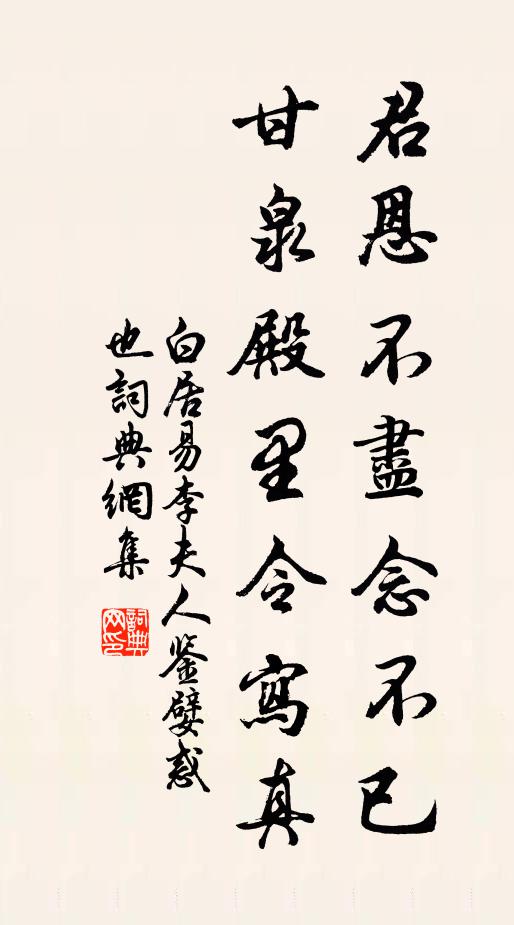 君恩不盡念不已
甘泉殿里令寫真
白居易李夫人鉴嬖惑
也詞典網集
詞典
网印